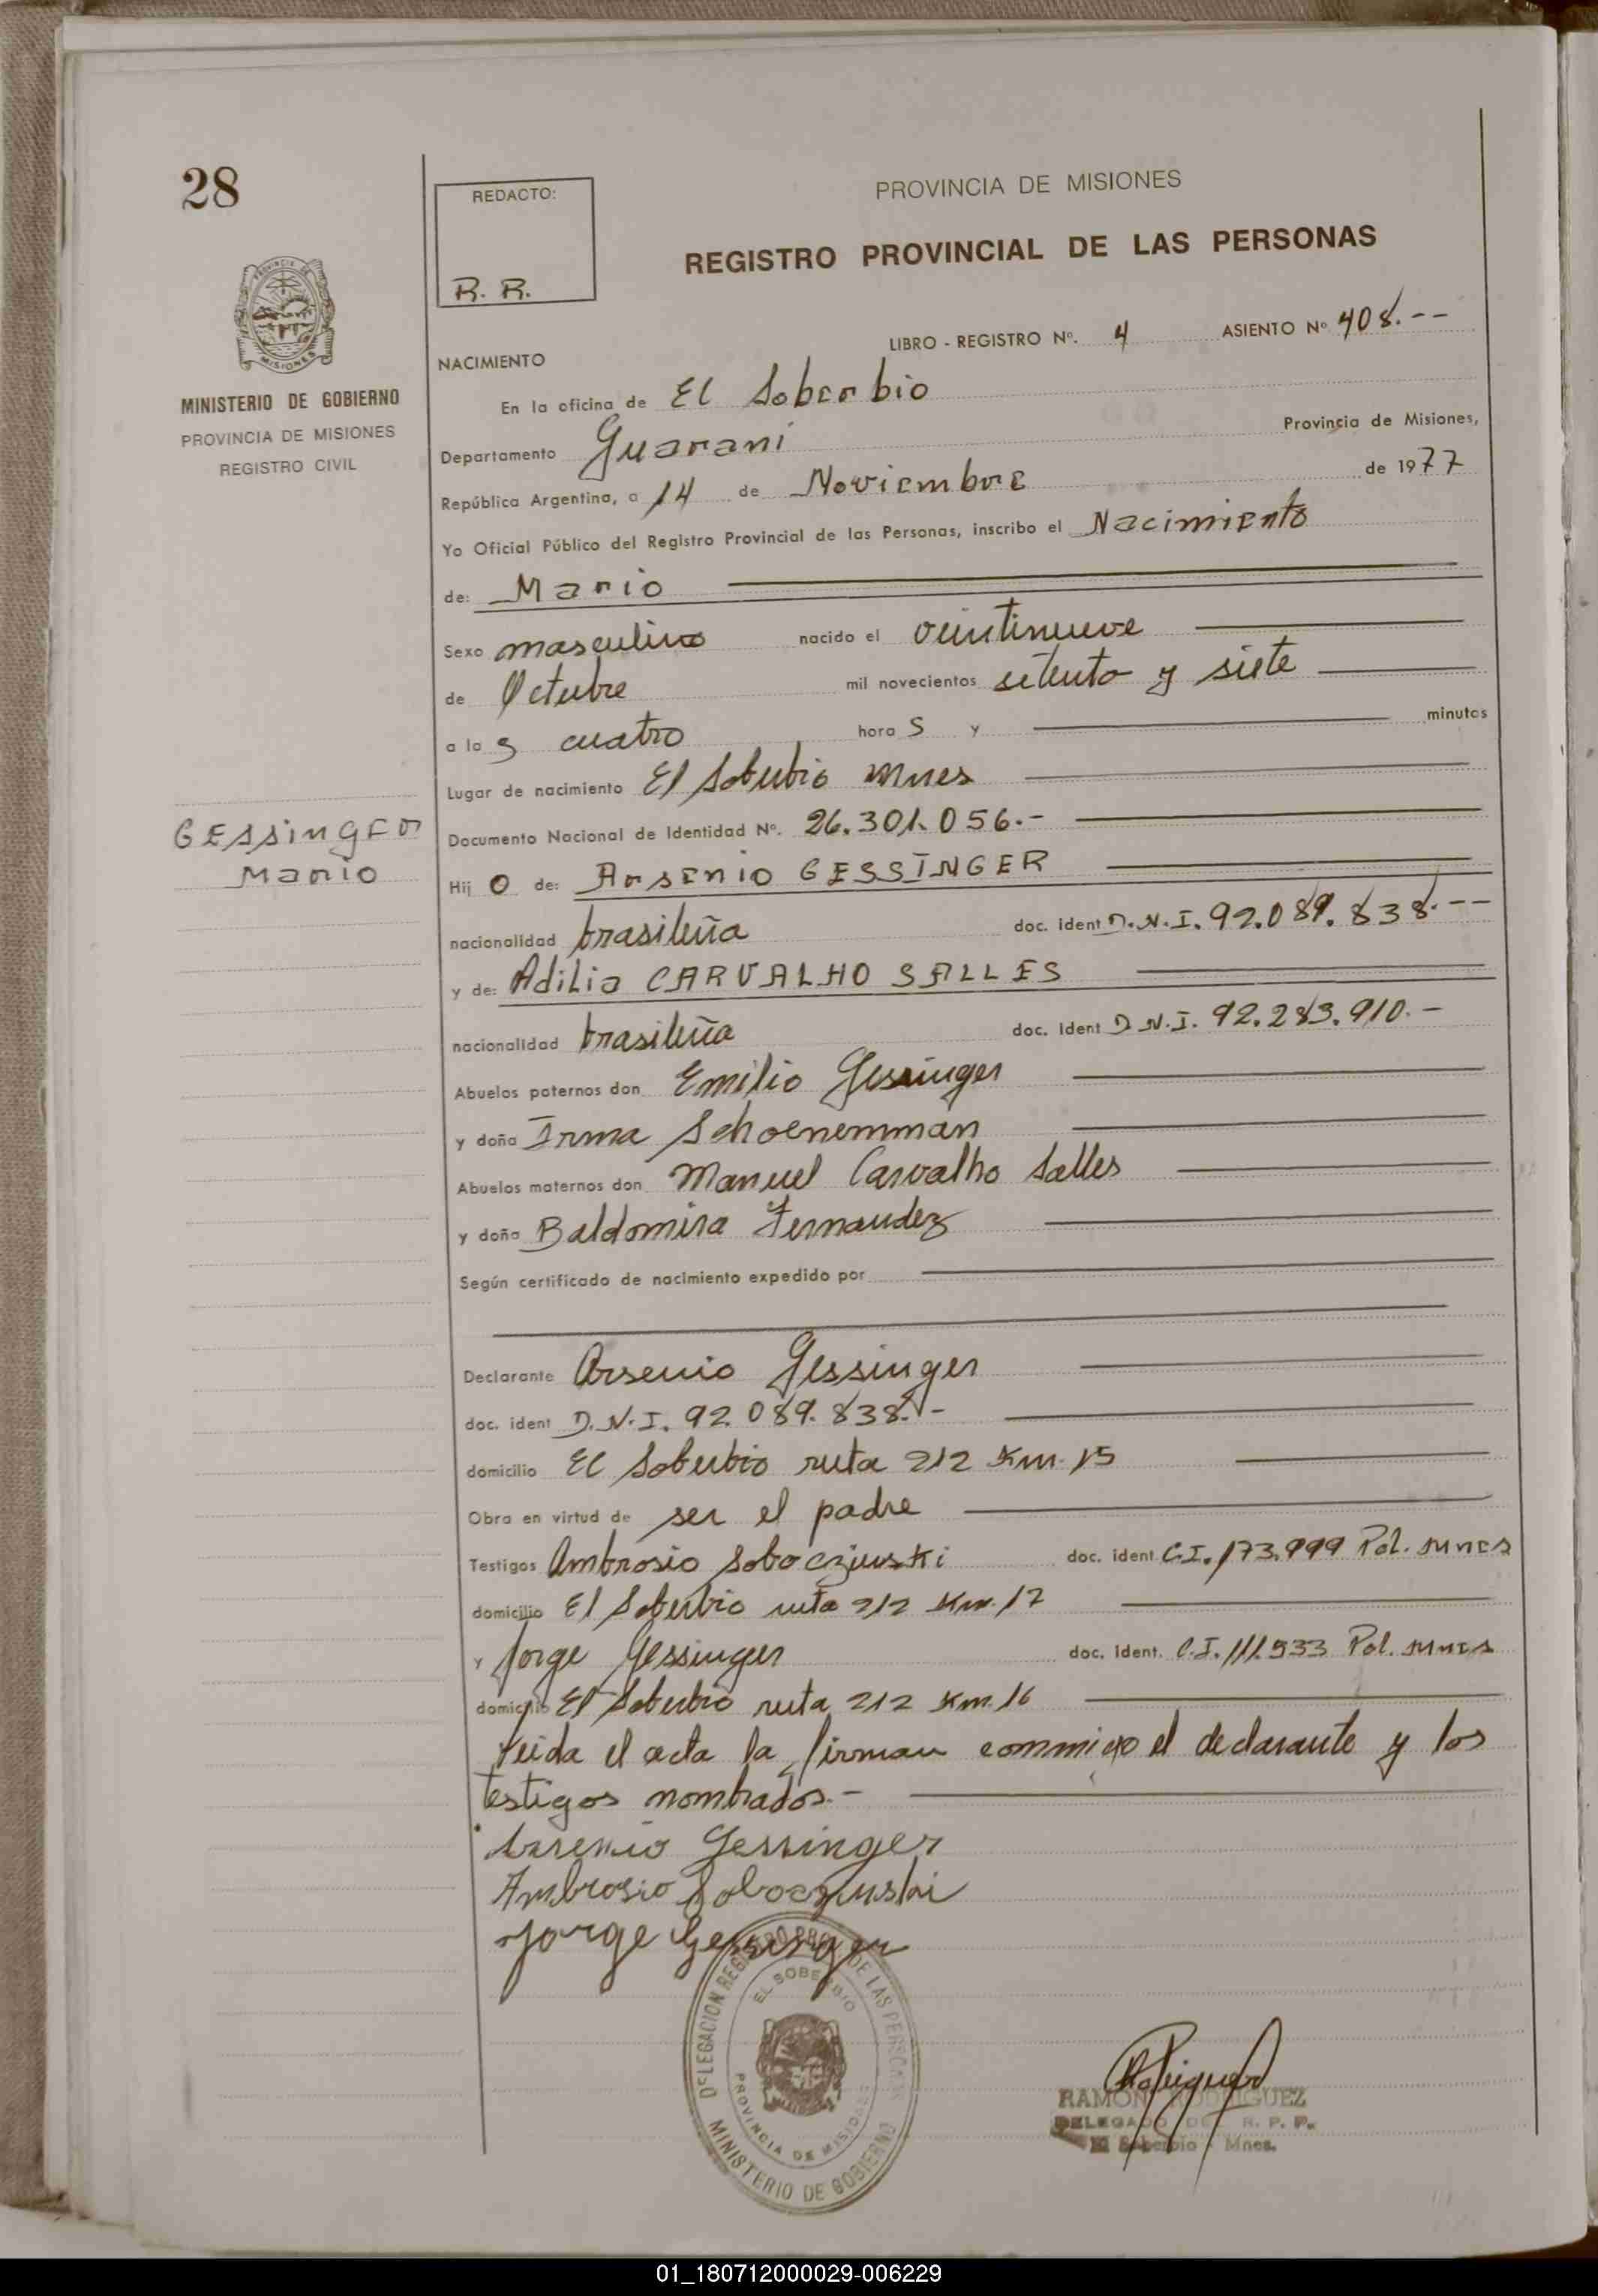 28
REDACTO:
R. R.
PROVINCIA DE MISIONES
REGISTRO PROVINCIAL DE LAS PERSONAS
LIBRO - REGISTRO Nº. 4 ASIENTO Nº 408.--
NACIMIENTO
PROVINCIA DE
MISIONES
MINISTERIO DE GOBIERNO
PROVINCIA DE MISIONES
REGISTRO CIVIL
En la oficina de El Soberbio
Departamento Guarani Provincia de Misiones,
República Argentina, a 14 de Noviembre de 1977
Yo Oficial Público del Registro Provincial de las Personas, inscribo el Nacimiento
de: Mario
Sexo masculino nacido el veintinueve
de Octubre mil novecientos setenta y siete
a la s cuatro hora s y minutos
Lugar de nacimiento El Soberbio Mnes
GESSinGEr
Mario
Documento Nacional de Identidad Nº. 26.301.056.-
Hij o de: Arsenio GESSINGER
nacionalidad brasileña doc. ident D.N.I. 92.089.838.--
y de: Adilia CARVALHO SALLES
nacionalidad brasileña doc. ident D.N.I. 92.283.910.-
Abuelos paternos don Emilio Gessinger
y doña Irma Schoenemman
Abuelos maternos don Manuel Carvalho Salles
y doña Baldomira Fernandez
Según certificado de nacimiento expedido por
Declarante Arsenio Gessinger
doc. ident D.N.I. 92.089.838.-
domicilio El Soberbio ruta 212 Km. 15
Obra en virtud de ser el padre
Testigos Ambrosio Soboczinski doc. ident C.I. 173.999 Pol. Mnes
domicilio El Soberbio ruta 212 Km. 17
y Jorge Gessinger doc. ident. C.I. 111.533 Pol. Mnes
domicilio El Soberbio ruta 212 Km. 16
Leida el acta la firman conmigo el declarante y los
testigos nombrados.-
Arsenio Gessinger
Ambrosio Soboczinski
Jorge Gessinger
DELEGACION REGISTRO PROV. DE LAS PERSONAS
EL SOBERBIO
PROVINCIA DE MISIONES
MINISTERIO DE GOBIERNO
RAMON RODRIGUEZ
DELEGADO DEL R. P. P.
El Soberbio - Mnes.
01_180712000029-006229